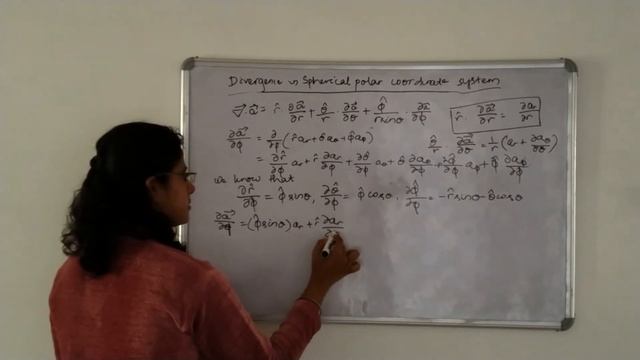 Divergence in Spherical polar coordinate system
∇⃗·a⃗ = r̂ · ∂a⃗/∂r + θ̂/r · ∂a⃗/∂θ + φ̂/(r sinθ) · ∂a⃗/∂φ
r̂ · ∂a⃗/∂r = ∂ar/∂r
∂a⃗/∂φ = ∂/∂φ (r̂ ar + θ̂ aθ + φ̂ aφ)
θ̂/r · ∂a⃗/∂θ = 1/r (ar + ∂aθ/∂θ)
= ∂r̂/∂φ ar + r̂ ∂ar/∂φ + ∂θ̂/∂φ aθ + θ̂ ∂aθ/∂φ + ∂φ̂/∂φ aφ + φ̂ ∂aφ/∂φ
we know that
∂r̂/∂φ = φ̂ sinθ, ∂θ̂/∂φ = φ̂ cosθ, ∂φ̂/∂φ = -r̂ sinθ - θ̂ cosθ
∂a⃗/∂φ = (φ̂ sinθ) ar + r̂ ∂ar/∂